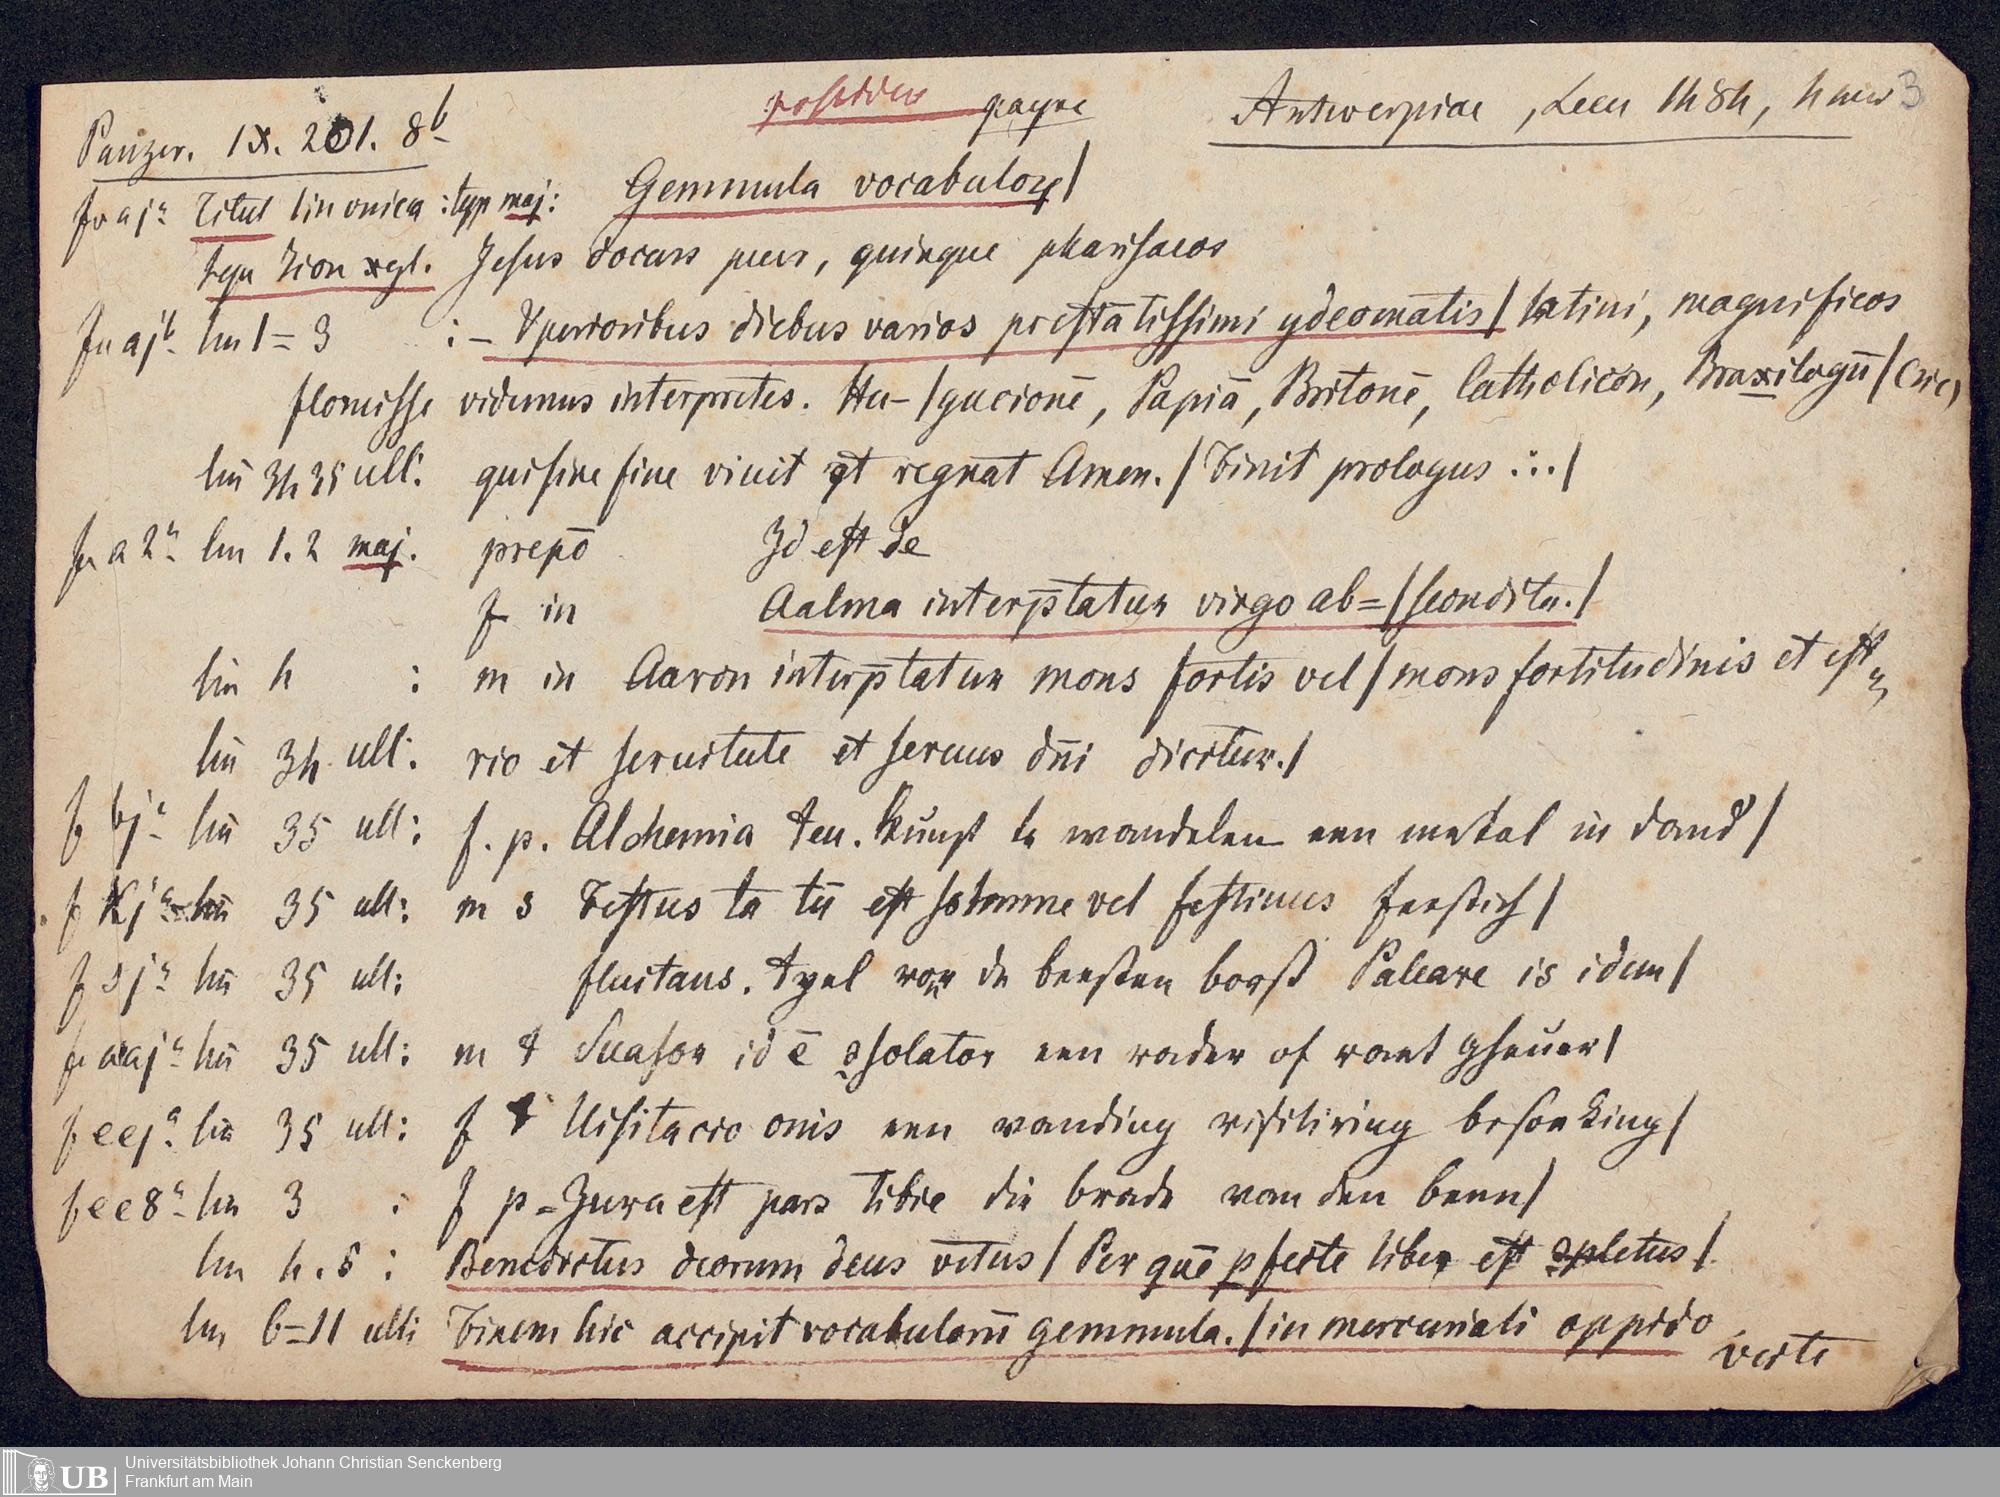 Panzer. IX. 201. 8b possideo pagne Antwerpiae, Leeu 1484, 4 3
fo aj a Titul lin unica : typ maj: Gemmula vocabuloꝝ/
Jesus docans puer, quinque pharisaeos
fo aj b lin 1=3 :- Superioribus diebus varios prestātissimi ydeomatis/ latini, magnificos
floruisse vidimus interpretes. Hu-/gucionē, Papiā, Britonē, Catholicōn, Braxilogū/
lin 34 35 ult: qui sine fine viuit et regnat Amen./ Finit prologus :·./
fo a 2 a lin 1. 2 maj. prepō Id est de
f in Aalma interp̄tatur virgo ab=/scondita./
lin 4 : m in Aaron interp̄tatur mons fortis vel/ mons fortitudinis et est
lin 34 ult: rio et seruitute et seruus dn̄i dicitur./
f bj a lin 35 ult: f. p. Alchemia ten. Kunst te wandelen een metal in dand/
f kj a lin 35 ult: m s Festus ta tū est solemne vel festiuus feestich/
f sj a lin 35 ult: fluitans. tyel van de beesten borst Paleare is idem/
f aaj a lin 35 ult: m t Suasor id ē ꝯsolator een rader of raet gheuer/
f eej a lin 35 ult: f t Uisitacio onis een vanding visitiring besoeking/
f ee8 a lin 3 : f p = Zura est pars tibie die brade van den been/
lin 4. 5 : Benedictus deorum deus vn̄tus/ Per quē pfecte liber est ꝯpletus/
lin 6=11 ult: Finem hic accipit vocabulorū gemmula./ in mercuriali oppido
verte
Universitätsbibliothek Johann Christian Senckenberg
Frankfurt am Main
UB